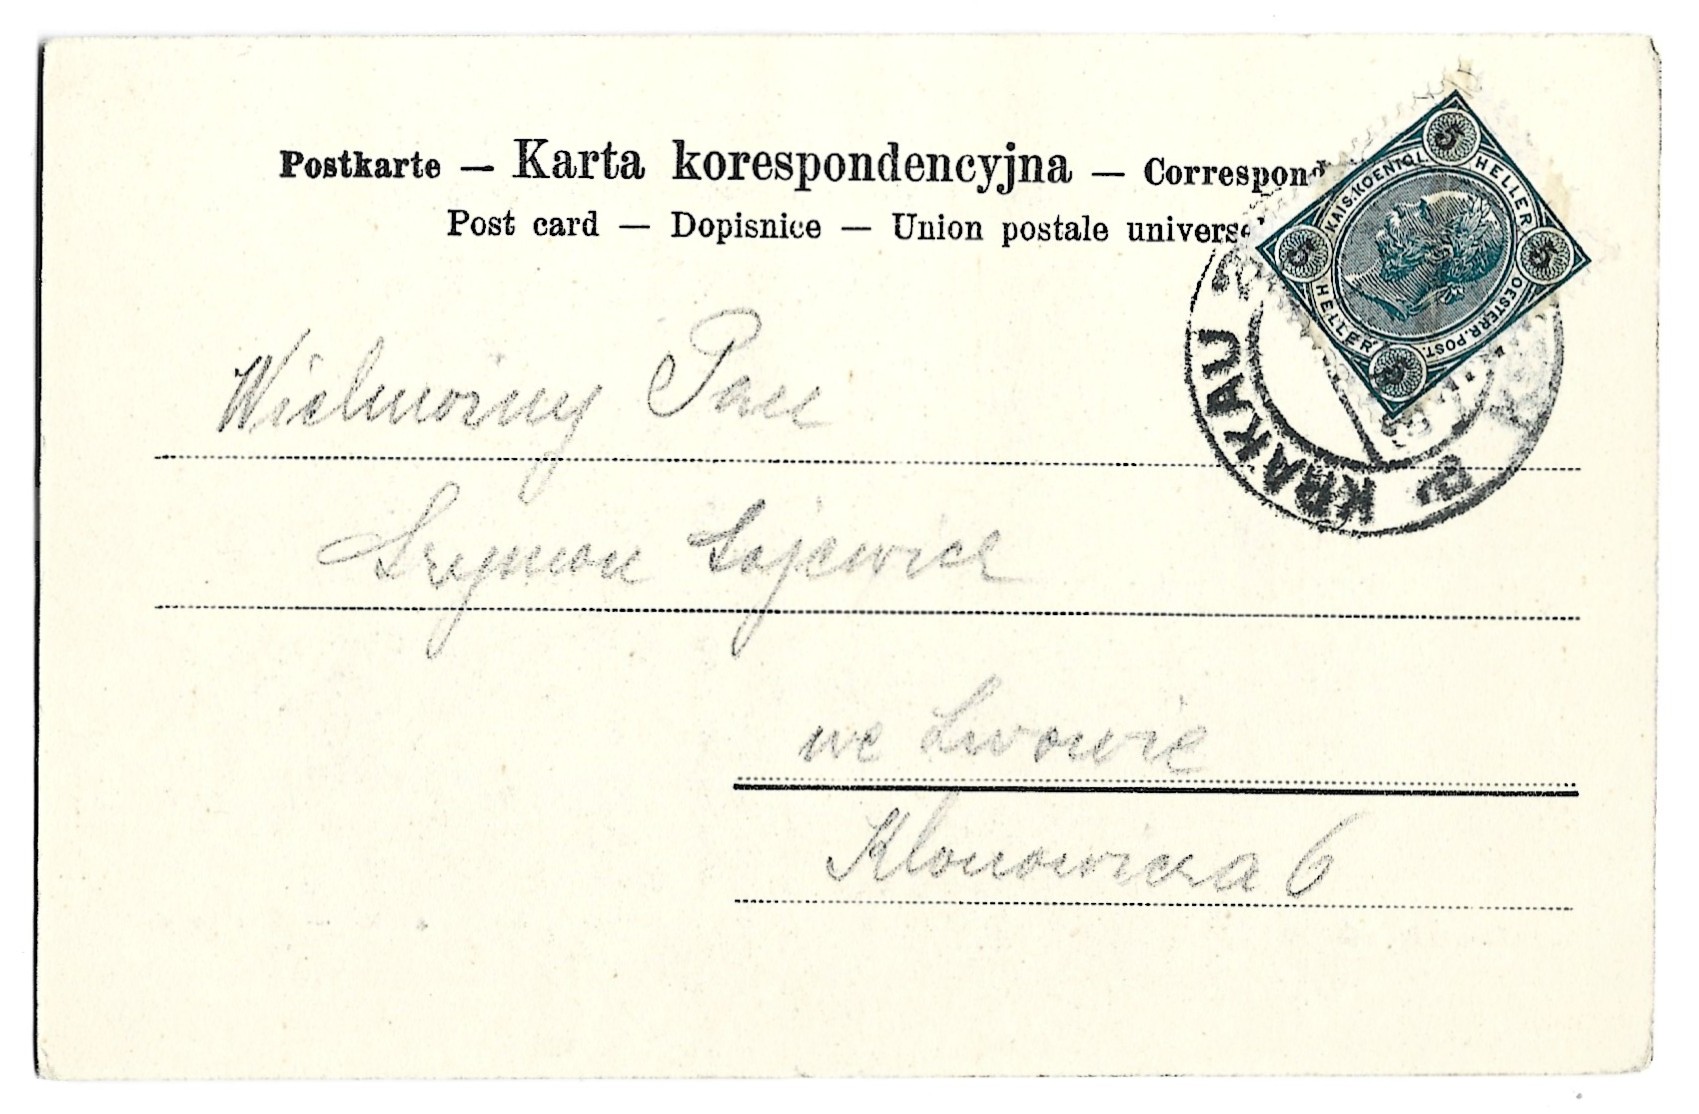 Postkarte — Karta korespondencyjna — Correspond
Post card — Dopisnice — Union postale universe
KAIS. KOENIGL. OESTERR. POST.
5 HELLER 5 HELLER 5 5
KRAKAU
Wielmożny Pan
Szymon Łajewicz
we Lwowie
Klonowicza 6